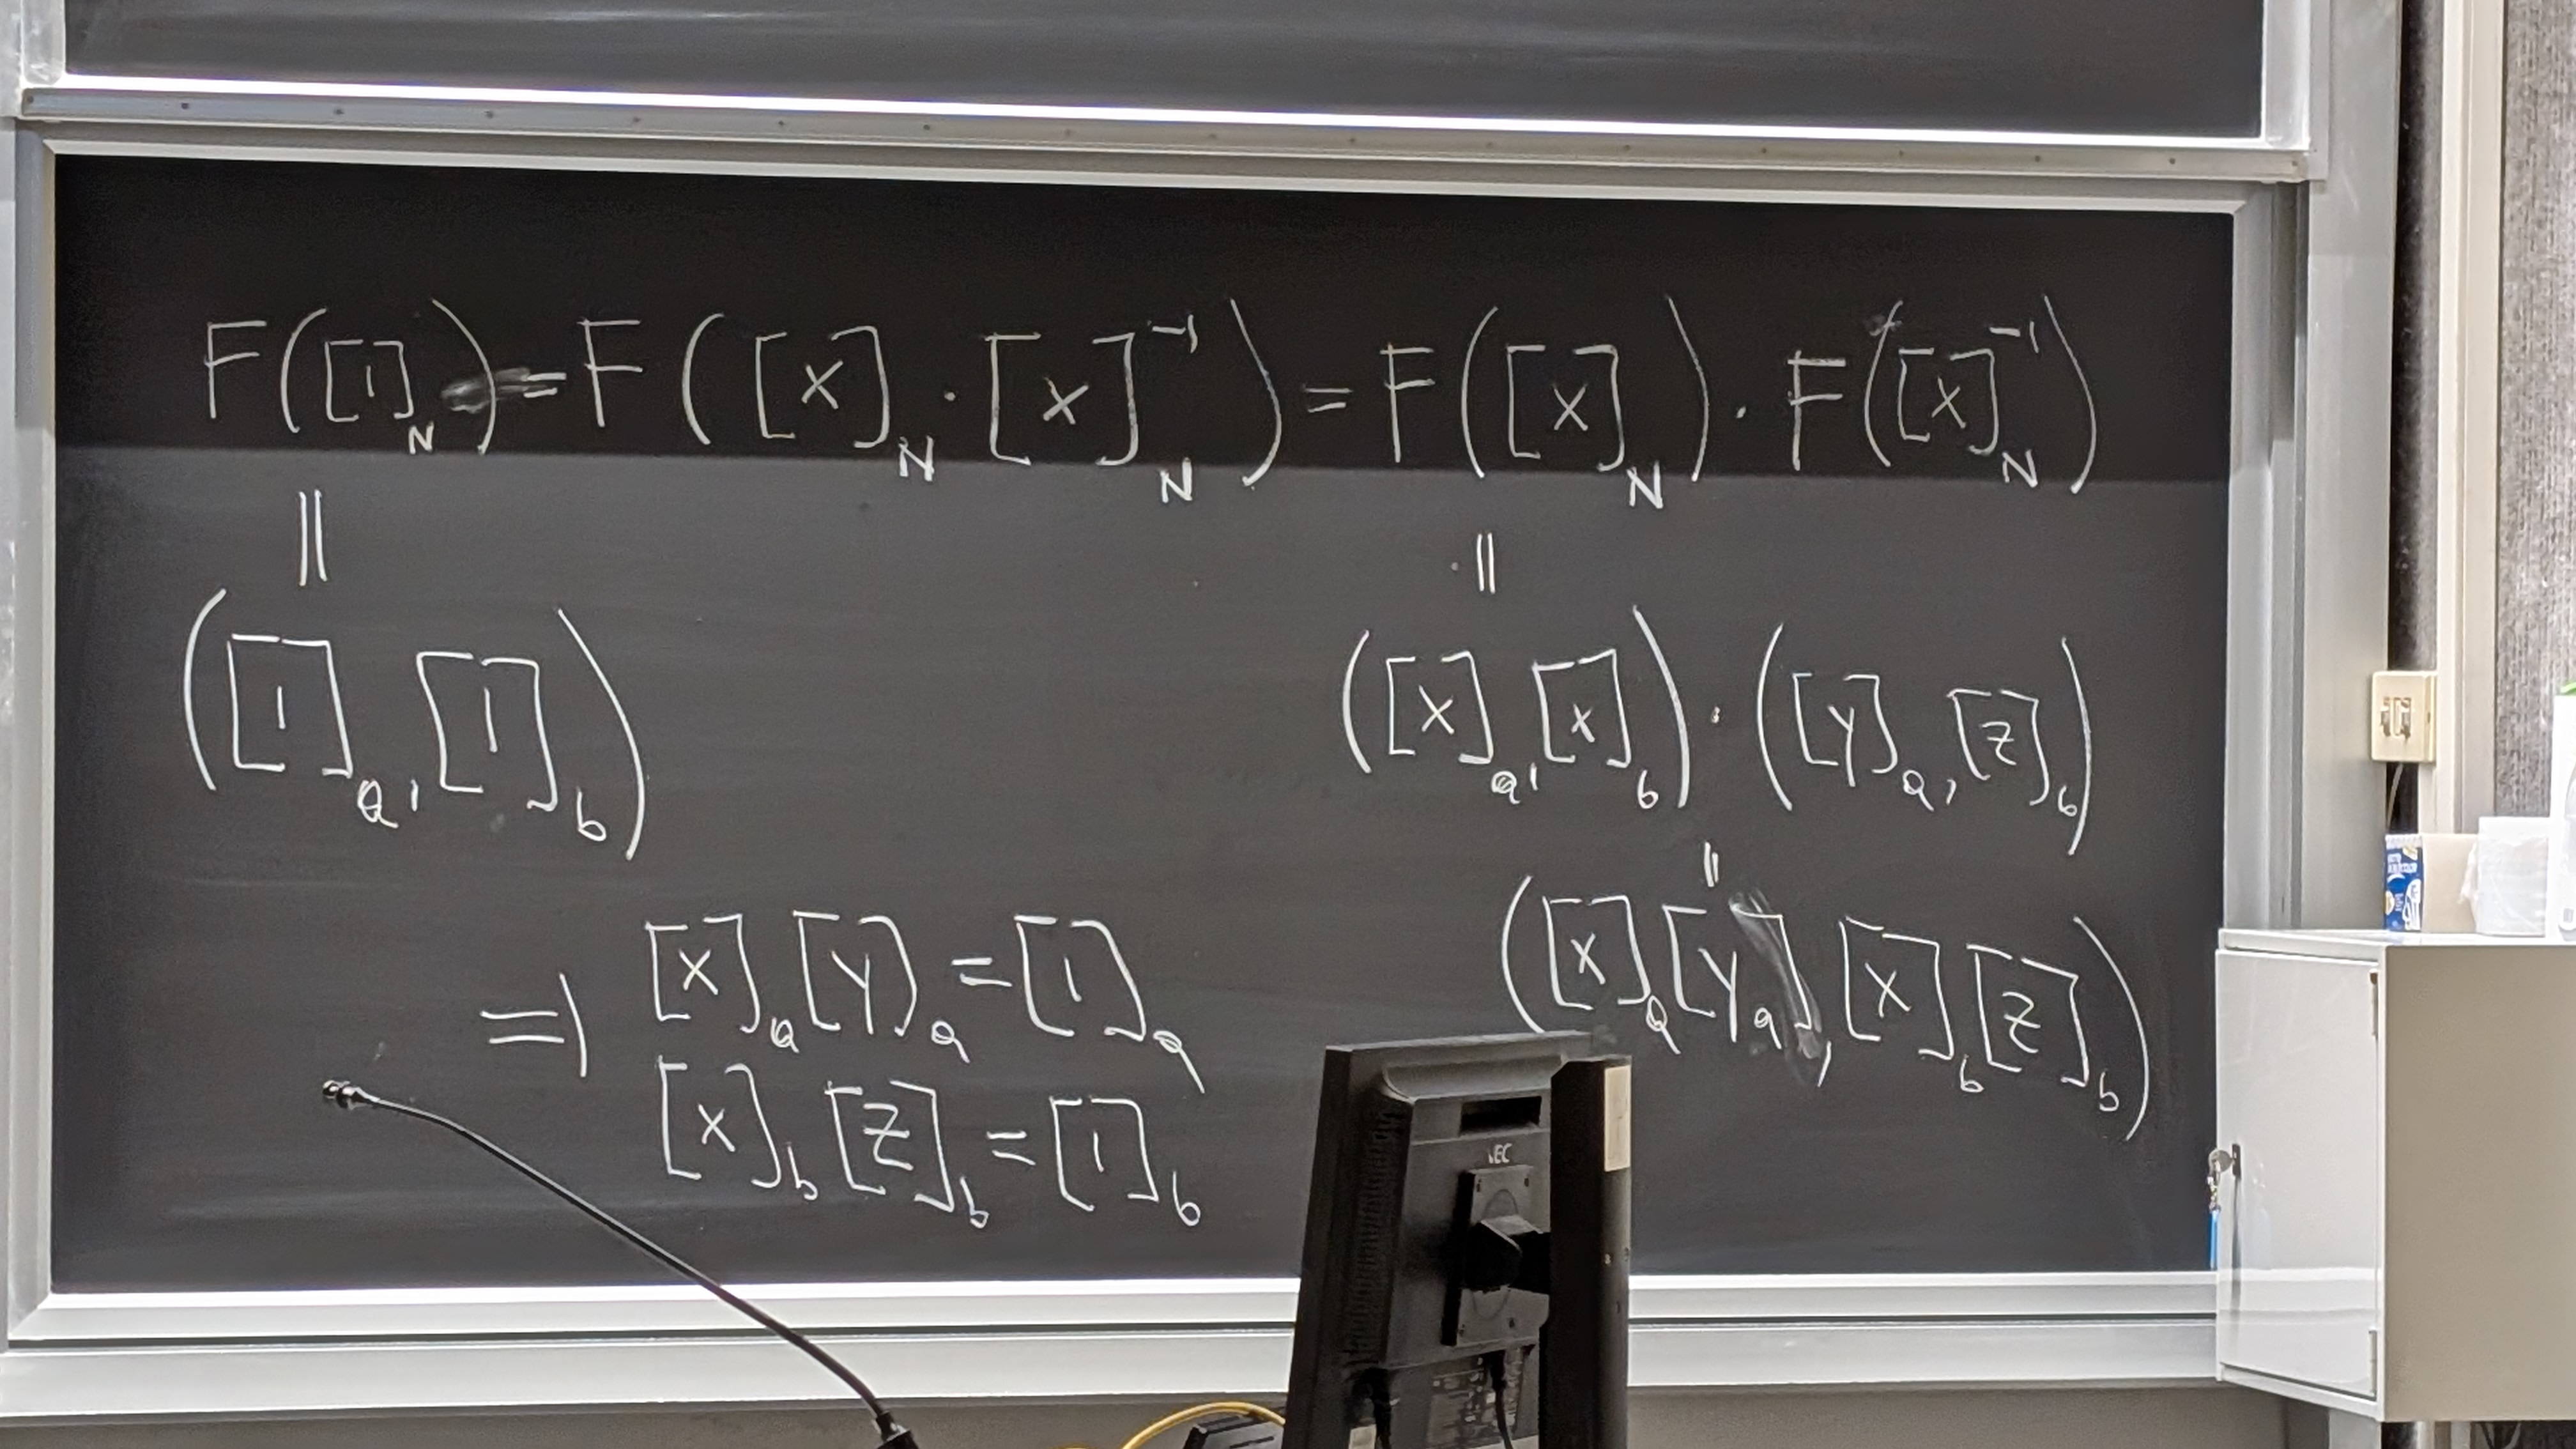 F([1]_N) = F([x]_N · [x]_N^{-1}) = F([x]_N) · F([x]_N^{-1})
|| ||
([1]_a, [1]_b) ([x]_a, [x]_b) · ([y]_a, [z]_b)
||
([x]_a [y_a], [x]_b [z]_b)
=> [x]_a [y]_a = [1]_a
[x]_b [z]_b = [1]_b
NEC